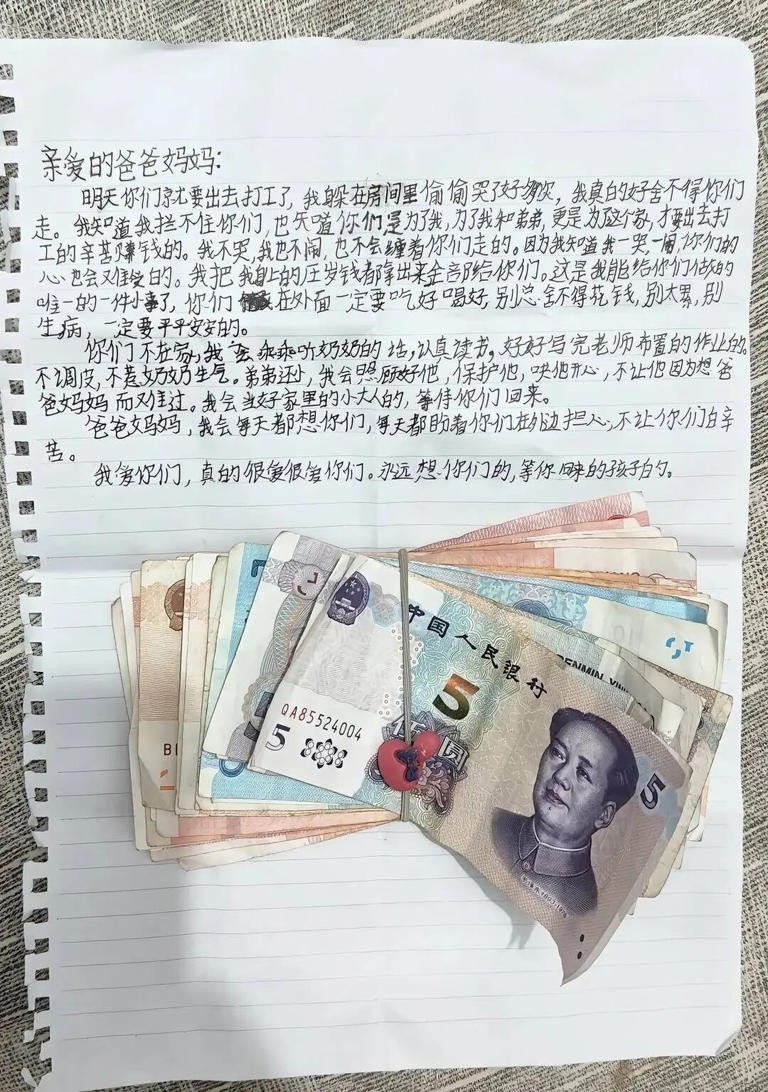 亲爱的爸爸妈妈:
明天你们就要出去打工了,我躲在房间里偷偷哭了好多次,我真的好舍不得你们
走。我知道我拦不住你们,也知道你们是为了我,为了我和弟弟,更是为这个家,才要出去打
工的辛苦赚钱的。我不哭,我也不闹,也不会缠着你们走的。因为我知道我一哭一闹,你们的
心也会又难受的。我把我身上的压岁钱都拿出来全部给你们。这是我能给你们做的
唯一的一件小事了,你们在外面一定要吃好喝好,别总舍不得花钱,别太累,别
生病,一定要平平安安的。
你们不在家,我会乖乖听奶奶的话,认真读书,好好写完老师布置的作业的。
不调皮,不惹奶奶生气。弟弟还小,我会照顾好他,保护他,哄他开心,不让他因为想爸
爸妈妈而又难过。我会当好家里的小大人的,等待你们回来。
爸爸妈妈,我会每天都想你们,每天都盼着你们在外边担心,不让你们白辛
苦。
我爱你们,真的很爱很爱你们。永远想你们的,等你回来的孩子的。
中国人民银行
5
QA85524004
5
伍圆
5
RENMIN YIN